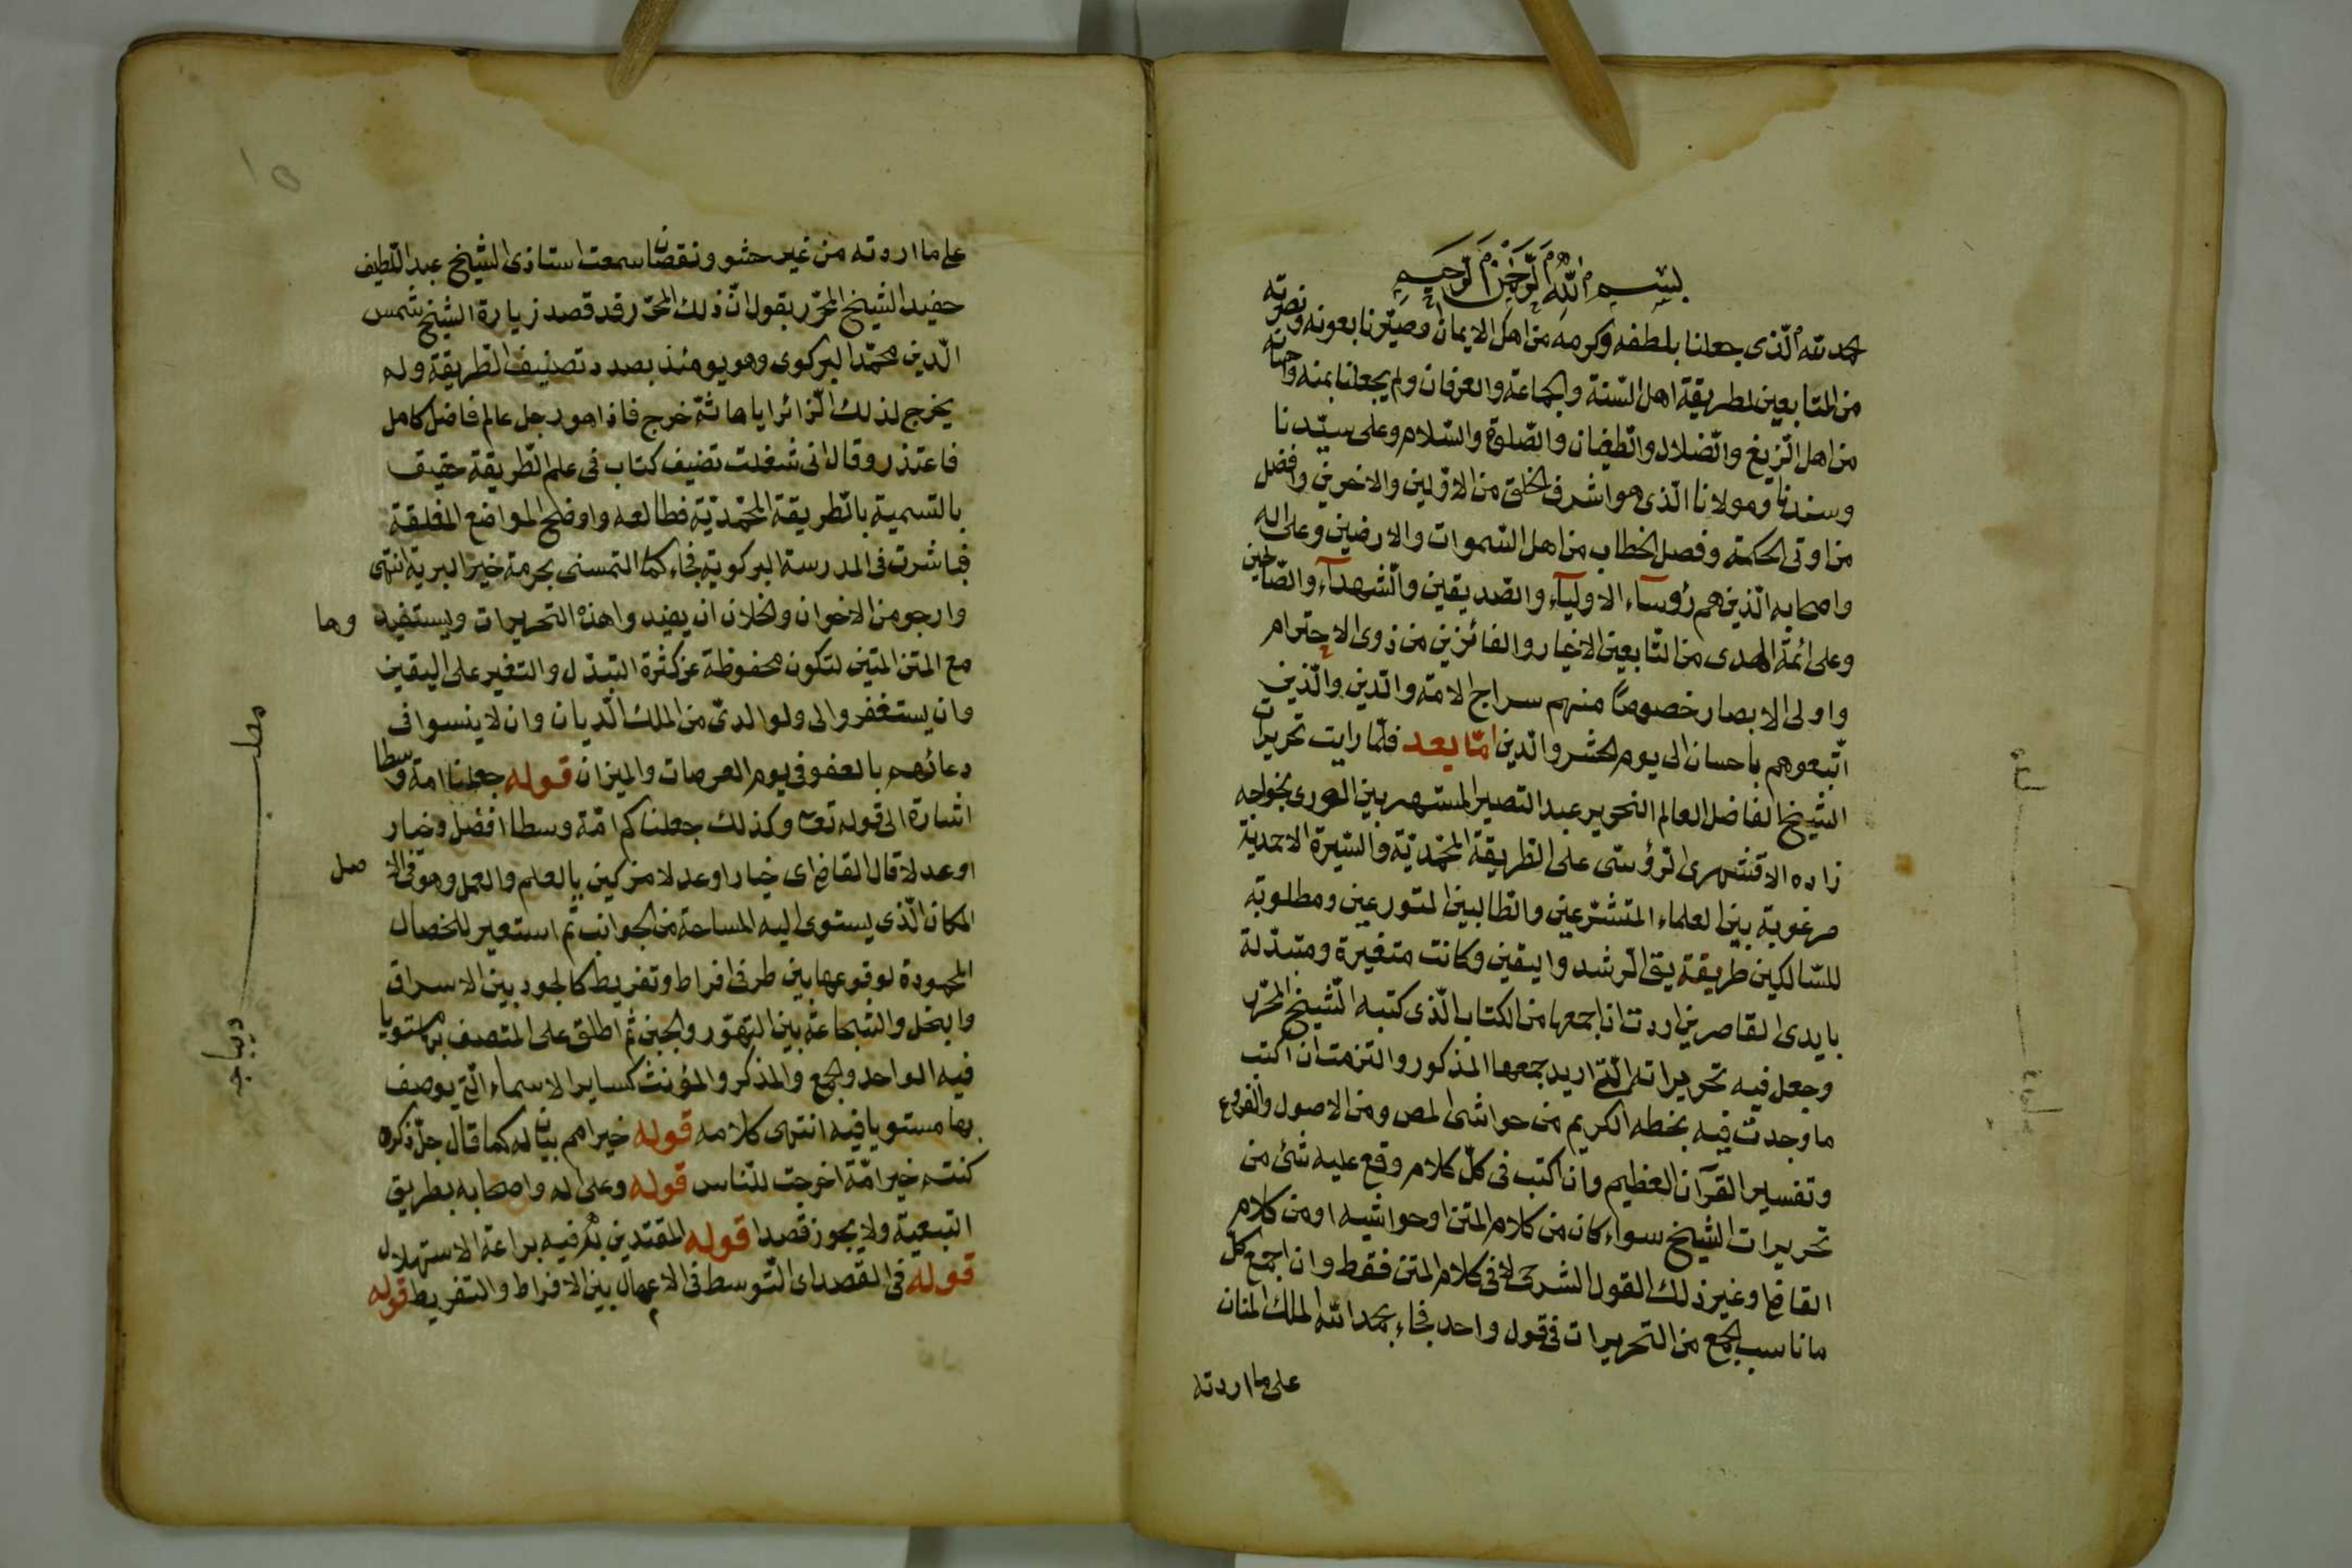 بسم الله الرحمن الرحيم
الحمد لله الّذى جعلنا بلطفه وكرمه من اهل الايمان وصيّرنا بعونه ونصرته
من المتابعين لطريقة اهل السّنة والجماعة والعرفان ولم يجعلنا بمنه
من اهل الزّيغ والضّلال والطّغيان والصّلوة والسّلام وعلى سيّدنا
وسندنا ومولانا الّذى هو اشرف الخلق من الاوّلين والاخرين وافضل
من اوتى الحكمة وفصل الخطاب من اهل السّموات والارضين وعلى اله
واصحابه الّذين هم رؤسآء الاوليآء والصّديقين والشّهدآء والصّالحين
وعلى ائمّة الهدى من التّابعين الاخيار والفائزين من ذوى الاحترام
واولى الابصار خصوصًا منهم سراج الامّة والدّين والّذين
اتّبعوهم باحسان الى يوم الحشر والدّين امّا بعد فلمّا رايت تحريرات
الشّيخ الفاضل العالم النحرير عبد النصير المشتهر بين الورى بخواجه
زاده الاقشهرى لرؤستى على الطّريقة المحمّديّة والسّيرة الاحمديّة
مرغوبة بين العلماء المتشرّعين والطّالبين المتورعين ومطلوبة
للسّالكين طريقة يتى الرّشد واليقين وكانت متغيّرة ومتبدّلة
بايدى القاصرين اردت ان اجمعها من الكتاب الّذى كتبه الشّيخ المحرّر
وجعل فيه تحريراته الّتى اريد جمعها المذكور والتزمت ان اكتب
ما وجدت فيه بخطه الكريم من حواشى المص ومن الاصول والفروع
وتفسير القرآن العظيم وان اكتب فى كلّ كلام وقع عليه شئ من
تحريرات الشّيخ سواء كان من كلام المتن او حواشيه او من كلام
القاضى او غير ذلك القول الشرحى لا فى كلام المتن فقط وان اجمع كل
ما ناسب الجمع من التحريرات فى قول واحد فجاء بحمد الله الملك المنان
على ما اردته
على ما اردته من غير حشو ونقصان سمعت استاذى الشّيخ عبد اللّطيف
حفيد الشّيخ المحرّر يقول انّ ذلك المحرّر قد قصد زيارة الشّيخ شمس
الدّين محمّد البركوى وهو يومئذ بصدد تصنيف الطّريقة وله
يخرج لذلك الزّائر اياما ثمّ خرج فاذا هو رجل عالم فاضل كامل
فاعتذر وقال انى شغلت تضيف كتاب فى علم الطّريقة حقيق
بالتسمية بالطّريقة المحمّديّة فطالعه واوضح المواضع المغلقة
فباشرت فى المدرسة البركوية فجاء كما التمسنى بحرمة خير البرية انتهى
وارجو من الاخوان والخلان ان يفيدوا هذه التحريرات ويستفيد وها
مع المتن المتين لتكون محفوظة عن كثرة التبدّل والتغير على اليقين
وان يستغفروا لى ولوالدىّ من الملك الدّيان وان لا ينسوا فى
دعائهم بالعفو فى يوم العرصات والميزان قوله جعلنا امة وسطا
اشارة الى قوله تعا وكذلك جعلناكم امّة وسطا افضل وخيار
او عدلا قال القاضى اى خيارا وعدلا مزكين بالعلم والعمل وهو فى الاصل
المكان الّذى يستوى اليه المساحة من الجوانب ثم استعير للخصال
المحمودة لوقوعها بين طرفى افراط وتفريط كالجود بين الاسراف
والبخل والشّجاعة بين التهوّر والجبن ثم اطلق على المتصف بها مستويا
فيه الواحد والجمع والمذكر والمؤنث كساير الاسماء الّتى يوصف
بها مستويا فيه انتهى كلامه قوله خير امم بيان له كما قال جلّ ذكره
كنتم خير امّة اخرجت للنّاس قوله وعلى اله واصحابه بطريق
التبعيّة ولا يجوز قصدا قوله المقتدين به فيه براعة الاستهلال
قوله فى القصد اى التّوسط فى الاعمال بين الافراط والتفريط قوله
مطلب
ديباجه